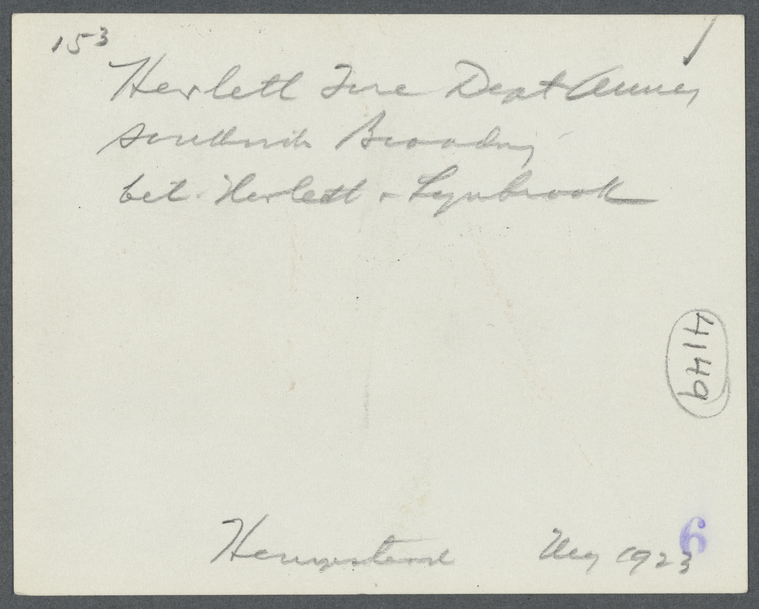 153
Hewlett Fire Dept Annex
south side Broadway
bet. Hewlett & Lynbrook
4149
Hempstead May 1923
6